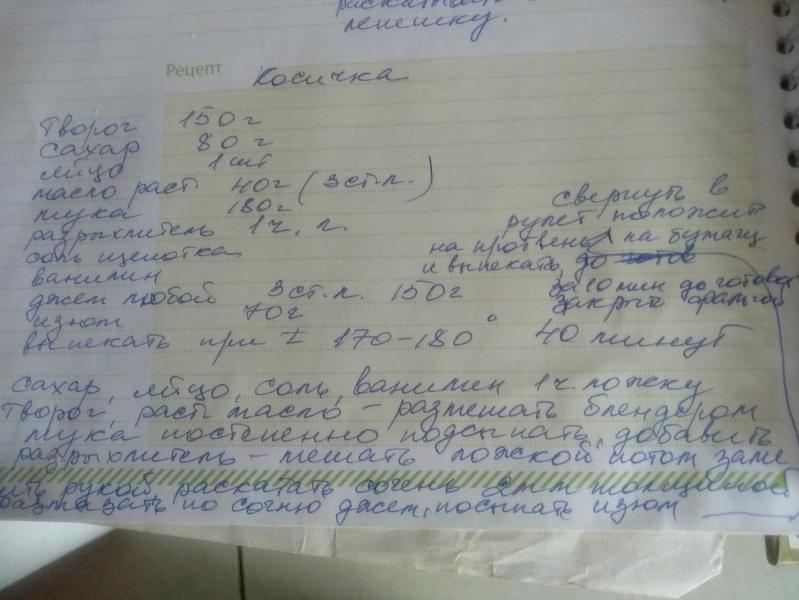 раскатывать
лепешку.
Рецепт Косичка
творог 150 г
сахар 80 г
яйцо 1 шт
масло раст 40 г (3 ст.л.)
мука 180 г
разрыхлитель 1 ч. л.
соль щепотка
ванилин
джем любой 3 ст.л. 150 г
изюм 70 г
выпекать при t 170-180° 40 минут
свернуть в
рулет положить
на противень на бумагу
и выпекать, до готов
за 10 мин до готов
закрыть фольгой
сахар, яйцо, соль, ванилин 1 ч ложку
творог, раст масло - размешать блендером
мука постепенно подсыпать, добавить
разрыхлитель - мешать ложкой потом заме
сить рукой раскатать сочень 2мм толщиной
размазать по сочню джем, посыпать изюм